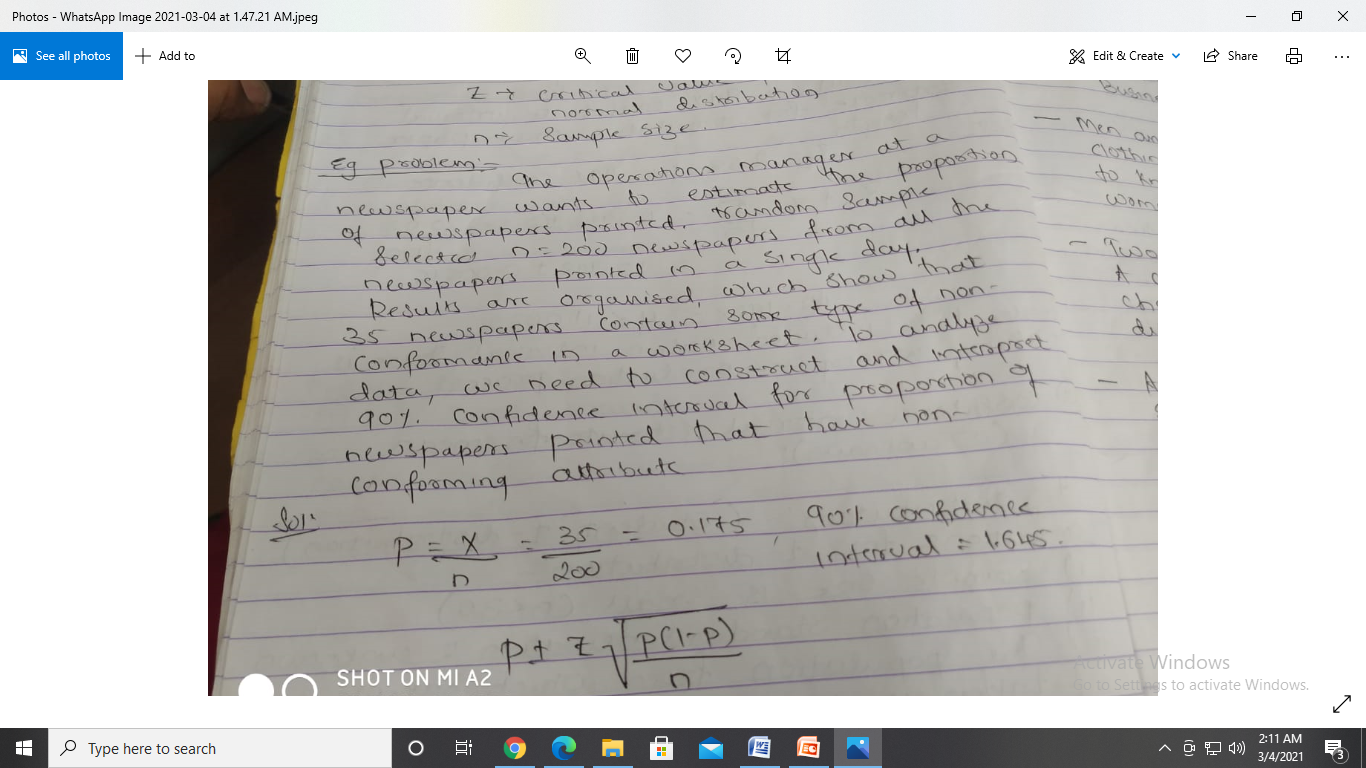 Photos - WhatsApp Image 2021-03-04 at 1.47.21 AM.jpeg
See all photos
Add to
Edit & Create
Share
Z → critical
normal distribution
n → Sample size.
Eg problem:-
The operations manager at a
newspaper wants to estimate the proportion
of newspapers printed. random Sample
Selected n = 200 newspapers from all the
newspapers printed in a single day.
Results are organised, which show that
35 newspapers contain some type of non-
conformance in a worksheet. To analyze
data, we need to construct and interpret
90% confidence interval for proportion of
newspapers printed that have non-
conforming attribute
Sol:
P = X/n = 35/200 = 0.175, 90% confidence
interval = 1.645.
P ± Z √p(1-p)/n
Men
to
Two
A
SHOT ON MI A2
Activate Windows
Go to Settings to activate Windows.
Type here to search
2:11 AM
3/4/2021
3